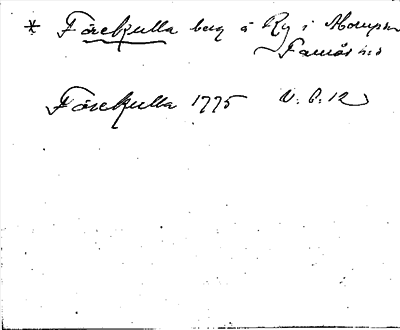 * Fårekulla berg å Ry i Morups sn
Faurås hd
Fårekulla 1775 V. 6. 12